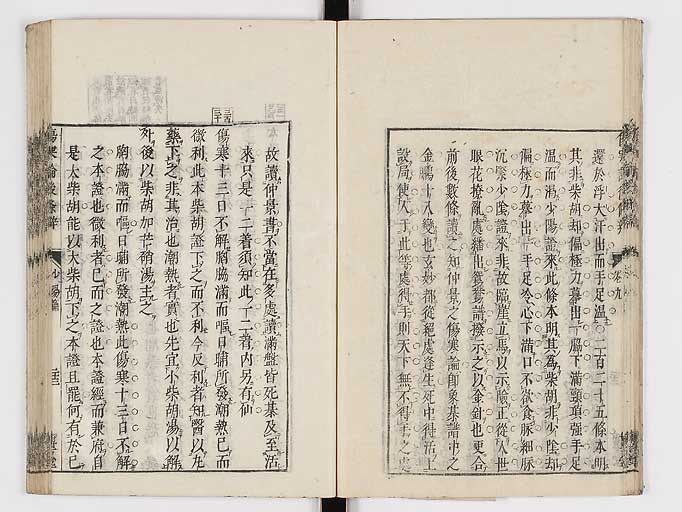 還於浮大汗出而手足溫○二百二十五條本明
其非柴胡却偏極力摹出下脇下滿頸項強手足
溫而渴少陽證來此條本明其為柴胡非少陰却
偏極力摹出手足冷心下滿口不欲食脉細脉
沉緊少陰證來非故臨崖立馬以示險正從人世
眼花撩亂處繡出鴛鴦譜撥示之以金針也更合
前後數條讀之知仲景之傷寒論即象棊譜中之
金鵬十八變也玄妙都從絕處逢生死中得活上
設局使人于此等處得手則天下無不得手之處
卷九
故讀仲景書不當在多處讀滿盤皆死棊及至活
來只是一二着須知此一二着內另有仙
傷寒十三日不解胸脇滿而嘔日晡所發潮熱已而
微利此本柴胡證下之而不利今反利者知醫以丸
藥下之非其治也潮熱者實也先宜小柴胡湯以解
外後以柴胡加芒硝湯主之
胸脇滿而嘔日晡所發潮熱此傷寒十三日不解
之本證也微利者已而之證也本證經而兼府自
是大柴胡能以大柴胡下之本證且罷何有於已
傷寒論後條辨
少陽篇